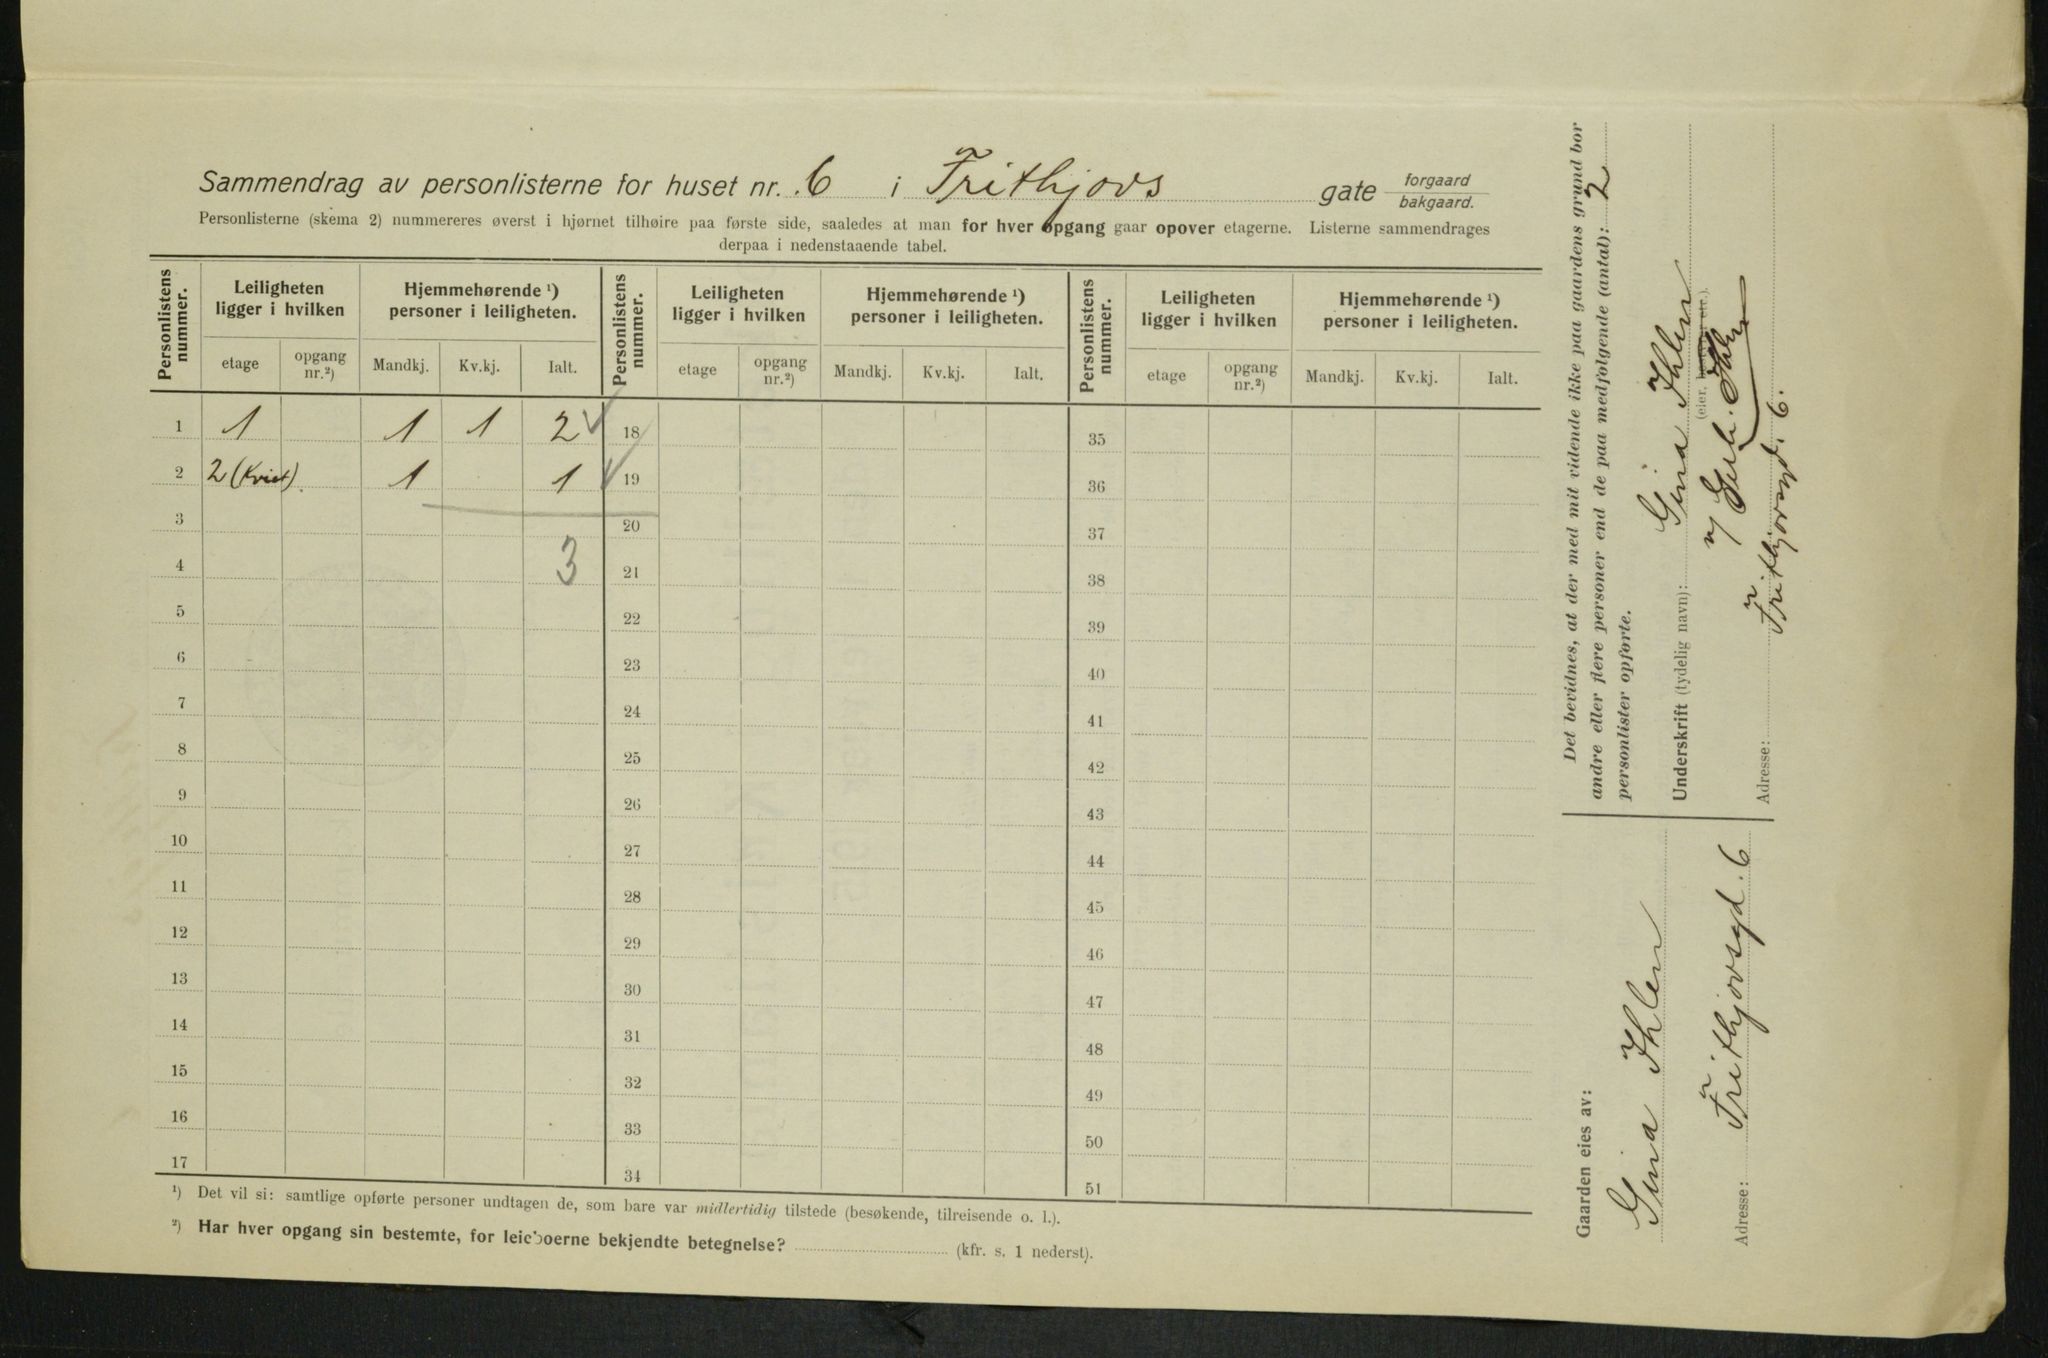 Sammendrag av personlisterne for huset nr. 6 i Frithjovs gate forgaard
bakgaard.
Personlisterne (skema 2) nummereres øverst i hjørnet tilhøire paa første side, saaledes at man for hver opgang gaar opover etagerne. Listerne sammendrages
derpaa i nedenstaaende tabel.
Personlistens nummer. Leiligheten ligger i hvilken Hjemmehørende ¹) personer i leiligheten. Personlistens nummer. Leiligheten ligger i hvilken Hjemmehørende ¹) personer i leiligheten. Personlistens nummer. Leiligheten ligger i hvilken Hjemmehørende ¹) personer i leiligheten.
etage opgang nr.²) Mandkj. Kv.kj. Ialt. etage opgang nr.²) Mandkj. Kv.kj. Ialt. etage opgang nr.²) Mandkj. Kv.kj. Ialt.
1 1 1 1 2 18 35
2 2 (Kvist) 1 1 19 36
3 20 37
4 3 21 38
5 22 39
6 23 40
7 24 41
8 25 42
9 26 43
10 27 44
11 28 45
12 29 46
13 30 47
14 31 48
15 32 49
16 33 50
17 34 51
¹) Det vil si: samtlige opførte personer undtagen de, som bare var midlertidig tilstede (besøkende, tilreisende o. l.).
²) Har hver opgang sin bestemte, for leieboerne bekjendte betegnelse? (kfr. s. 1 nederst).
Det bevidnes, at der med mit vidende ikke paa gaardens grund bor
andre eller flere personer end de paa medfølgende (antal): 2
personlister opførte.
Underskrift (tydelig navn): Gina Ihlen
(eier, etc.).
Ihlen
Adresse: Frithjovsgd. 6.
Gaarden eies av:
Gina Ihlen
Adresse: Frithjovsgd. 6